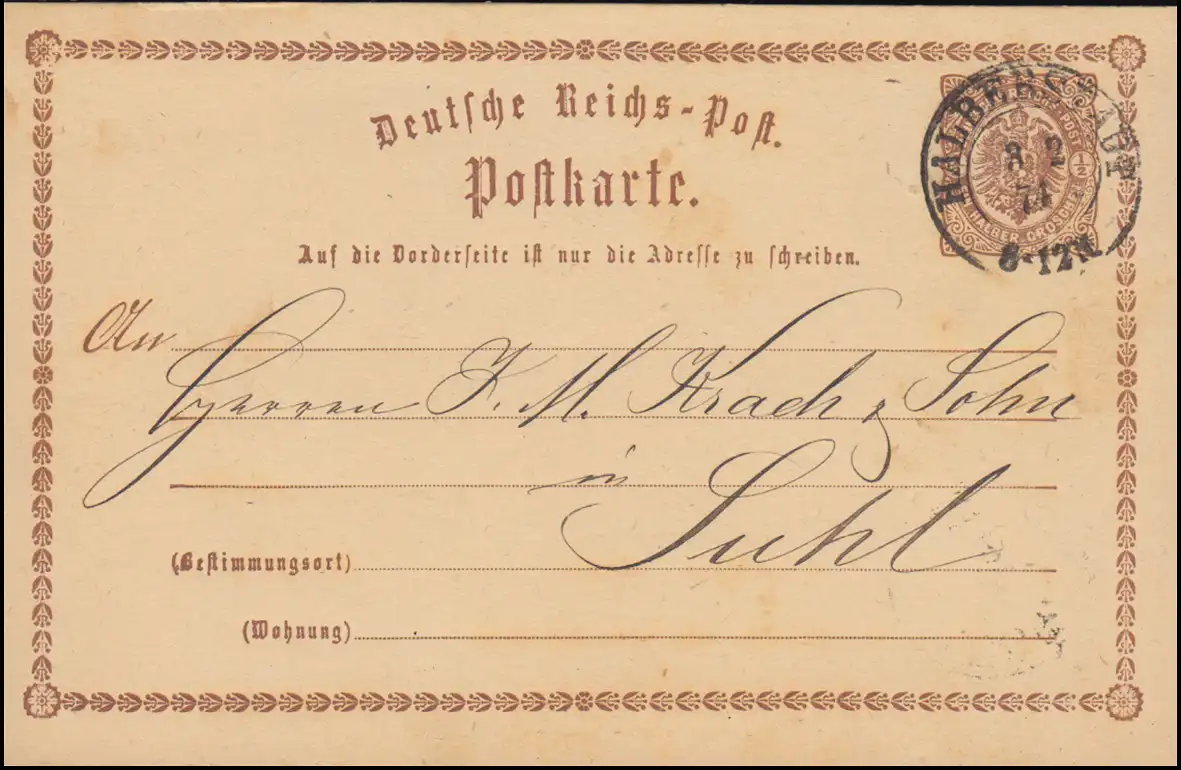 Deutsche Reichs-Post.
Postkarte.
Auf die Vorderseite ist nur die Adresse zu schreiben.
HALBERSTADT
8 2
74
8-12 M
POST
½
EIN HALBER GROSCHEN
An
Herren F. M. Krach & Sohn
in
Suhl
(Bestimmungsort)
(Wohnung)